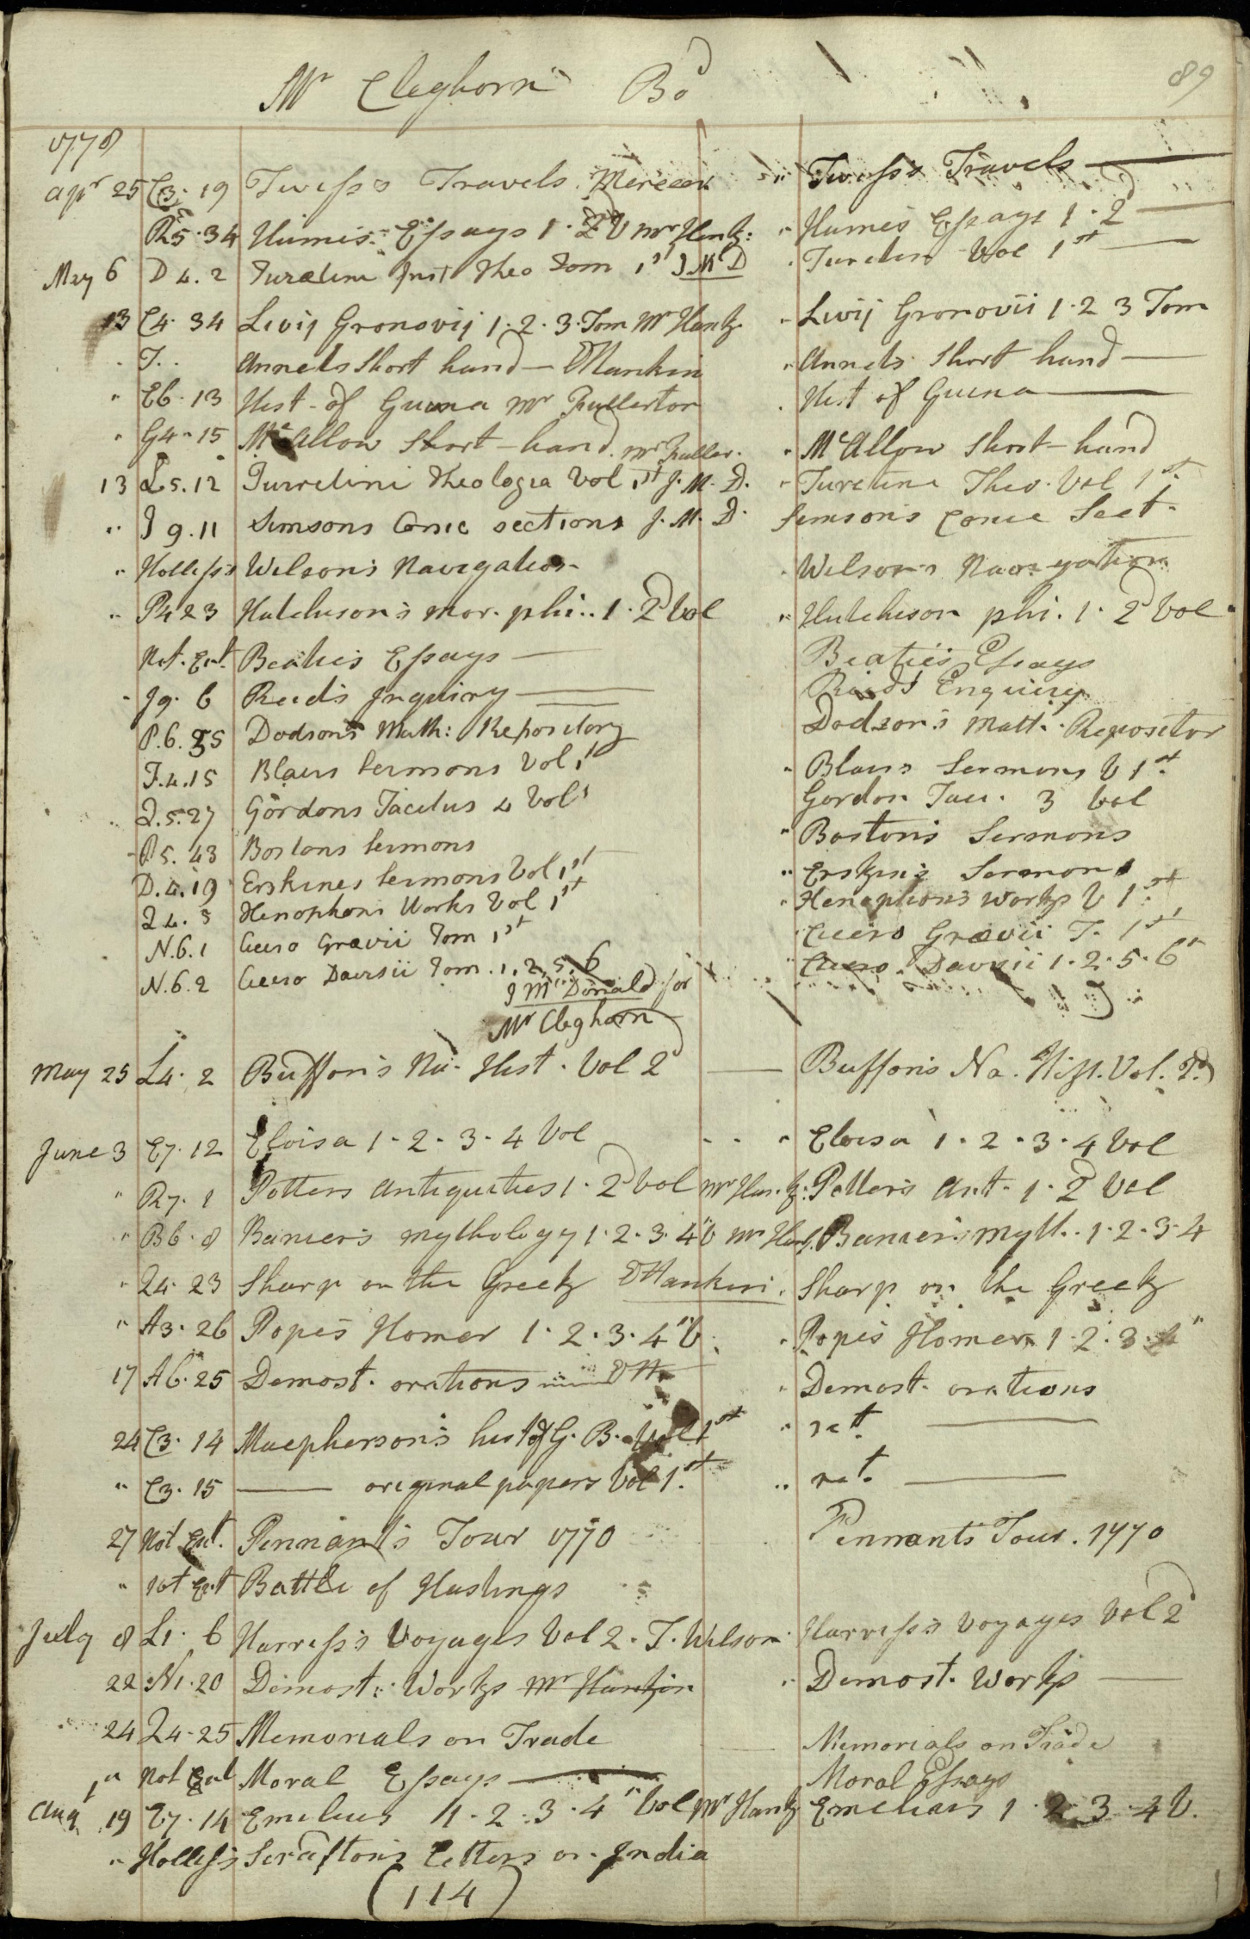 Mr Cleghorn Bod 89
1778
Apr 25 C3. 19 Twiss's Travels " Twiss's Travels
R5. 34 Humes Essays 1. 2d V Mr Hank: " Humes Essays 1. 2d
May 6 D 4. 2 Turetini Inst Theo Tom 1st J McD . Turetin Vol 1st
13 C4. 34 Livij Gronovij 1. 2. 3. Tom Mr Hank. " Livij Gronovii 1. 2 3 Tom
" T.. Annets Short hand — D Hankin " Annets Short hand —
" E6. 13 Hist. of Guiana Mr Fullerton . Hist of Guiana
" G4. 15 McAllow Short-hand. Mr Fuller. " McAllow Short-hand
13 L5. 12 Turretini Theologia Vol 1st J. M. D. " Turetine Theo. Vol 1st
" J 9. 11 Simsons Conic sections J. M. D. Simson's Conic Sect.
" Holliss's Wilson's Navigation " Wilson's Navigation
" P4 23 Hutchison's Mor. phi.. 1. 2d Vol " Hutchison phi. 1. 2d Vol
Not. Ent. Beatie's Essays — Beatie's Essays
" J9. 6 Reid's Inquiry — Reid's Enquiry
P.6. 35 Dodson's Math: Repository Dodson's Matt. Repositor
F.4.15 Blairs Sermons Vol 1st " Blairs Sermons V 1st
Q.5.27 Gordons Tacitus 4 Vols Gordon Taci. 3 Vol
P5. 43 Bostons Sermons " Boston's Sermons
D.4.19 Erskines Sermons Vol 1st " Erskin's Sermons
Q4. 3 Xenophons Works Vol 1st " Xenophon's Works V 1st
N.6.1 Cicero Graevii Tom 1st " Cicero Graevii T. 1st
N.6.2 Cicero Davisii Tom. 1. 2, 5. 6 Cicero Davisii 1. 2. 5. 6
J McDonald for
Mr Cleghorn
May 25 L4. 2 Buffon's Na. Hist. Vol 2d — Buffon's Na. Hist. Vol. 2d
June 3 E7. 12 Eloisa 1. 2. 3. 4 Vol " Eloisa 1. 2. 3. 4 Vol
" R7. 1 Potters Antiquities 1. 2d Vol Mr Hank: Potter's Ant. 1. 2d Vol
" B6. 8 Banier's Mythology 1. 2. 3. 4" V Mr Hank. Banier's Myth. 1. 2. 3. 4
" Q4. 23 Sharp on the Greek D Hankin. " Sharp on the Greek
" A3. 26 Pope's Homer 1. 2. 3. 4" V. " Pope's Homer 1. 2. 3. 4"
17 A6. 25 Demost. orations DH " Demost. orations
24 C3. 14 Macpherson's hist of G. B. Vol 1st " ret. —
" C3. 15 — original papers Vol 1st " ret. —
27 Not Ent. Pennant's Tour 1770 Pennants Tour. 1770
" Not Ent Battle of Hastings
July 8 L1. 6 Harriss's Voyages Vol 2. T. Wilson. Harriss's Voyages Vol 2d
22 N1. 20 Demost. Works Mr Hankin " Demost. Works —
24 Q4. 25 Memorials on Trade — Memorials on Trade
" Not Ent Moral Essays — Moral Essays
Augt 19 E7. 14 Emilius 1. 2. 3. 4" Vol Mr Hank Emelius 1. 2 3. 4 V.
" Holliss's Scrafton's Letters on India
(114)